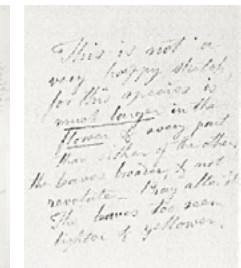 This is not a
very happy sketch,
for this species is
much larger in the
flower & every part
than either of the others
the leaves broader, & not
revolute – Pray alter it
The leaves too seem
lighter & yellower.